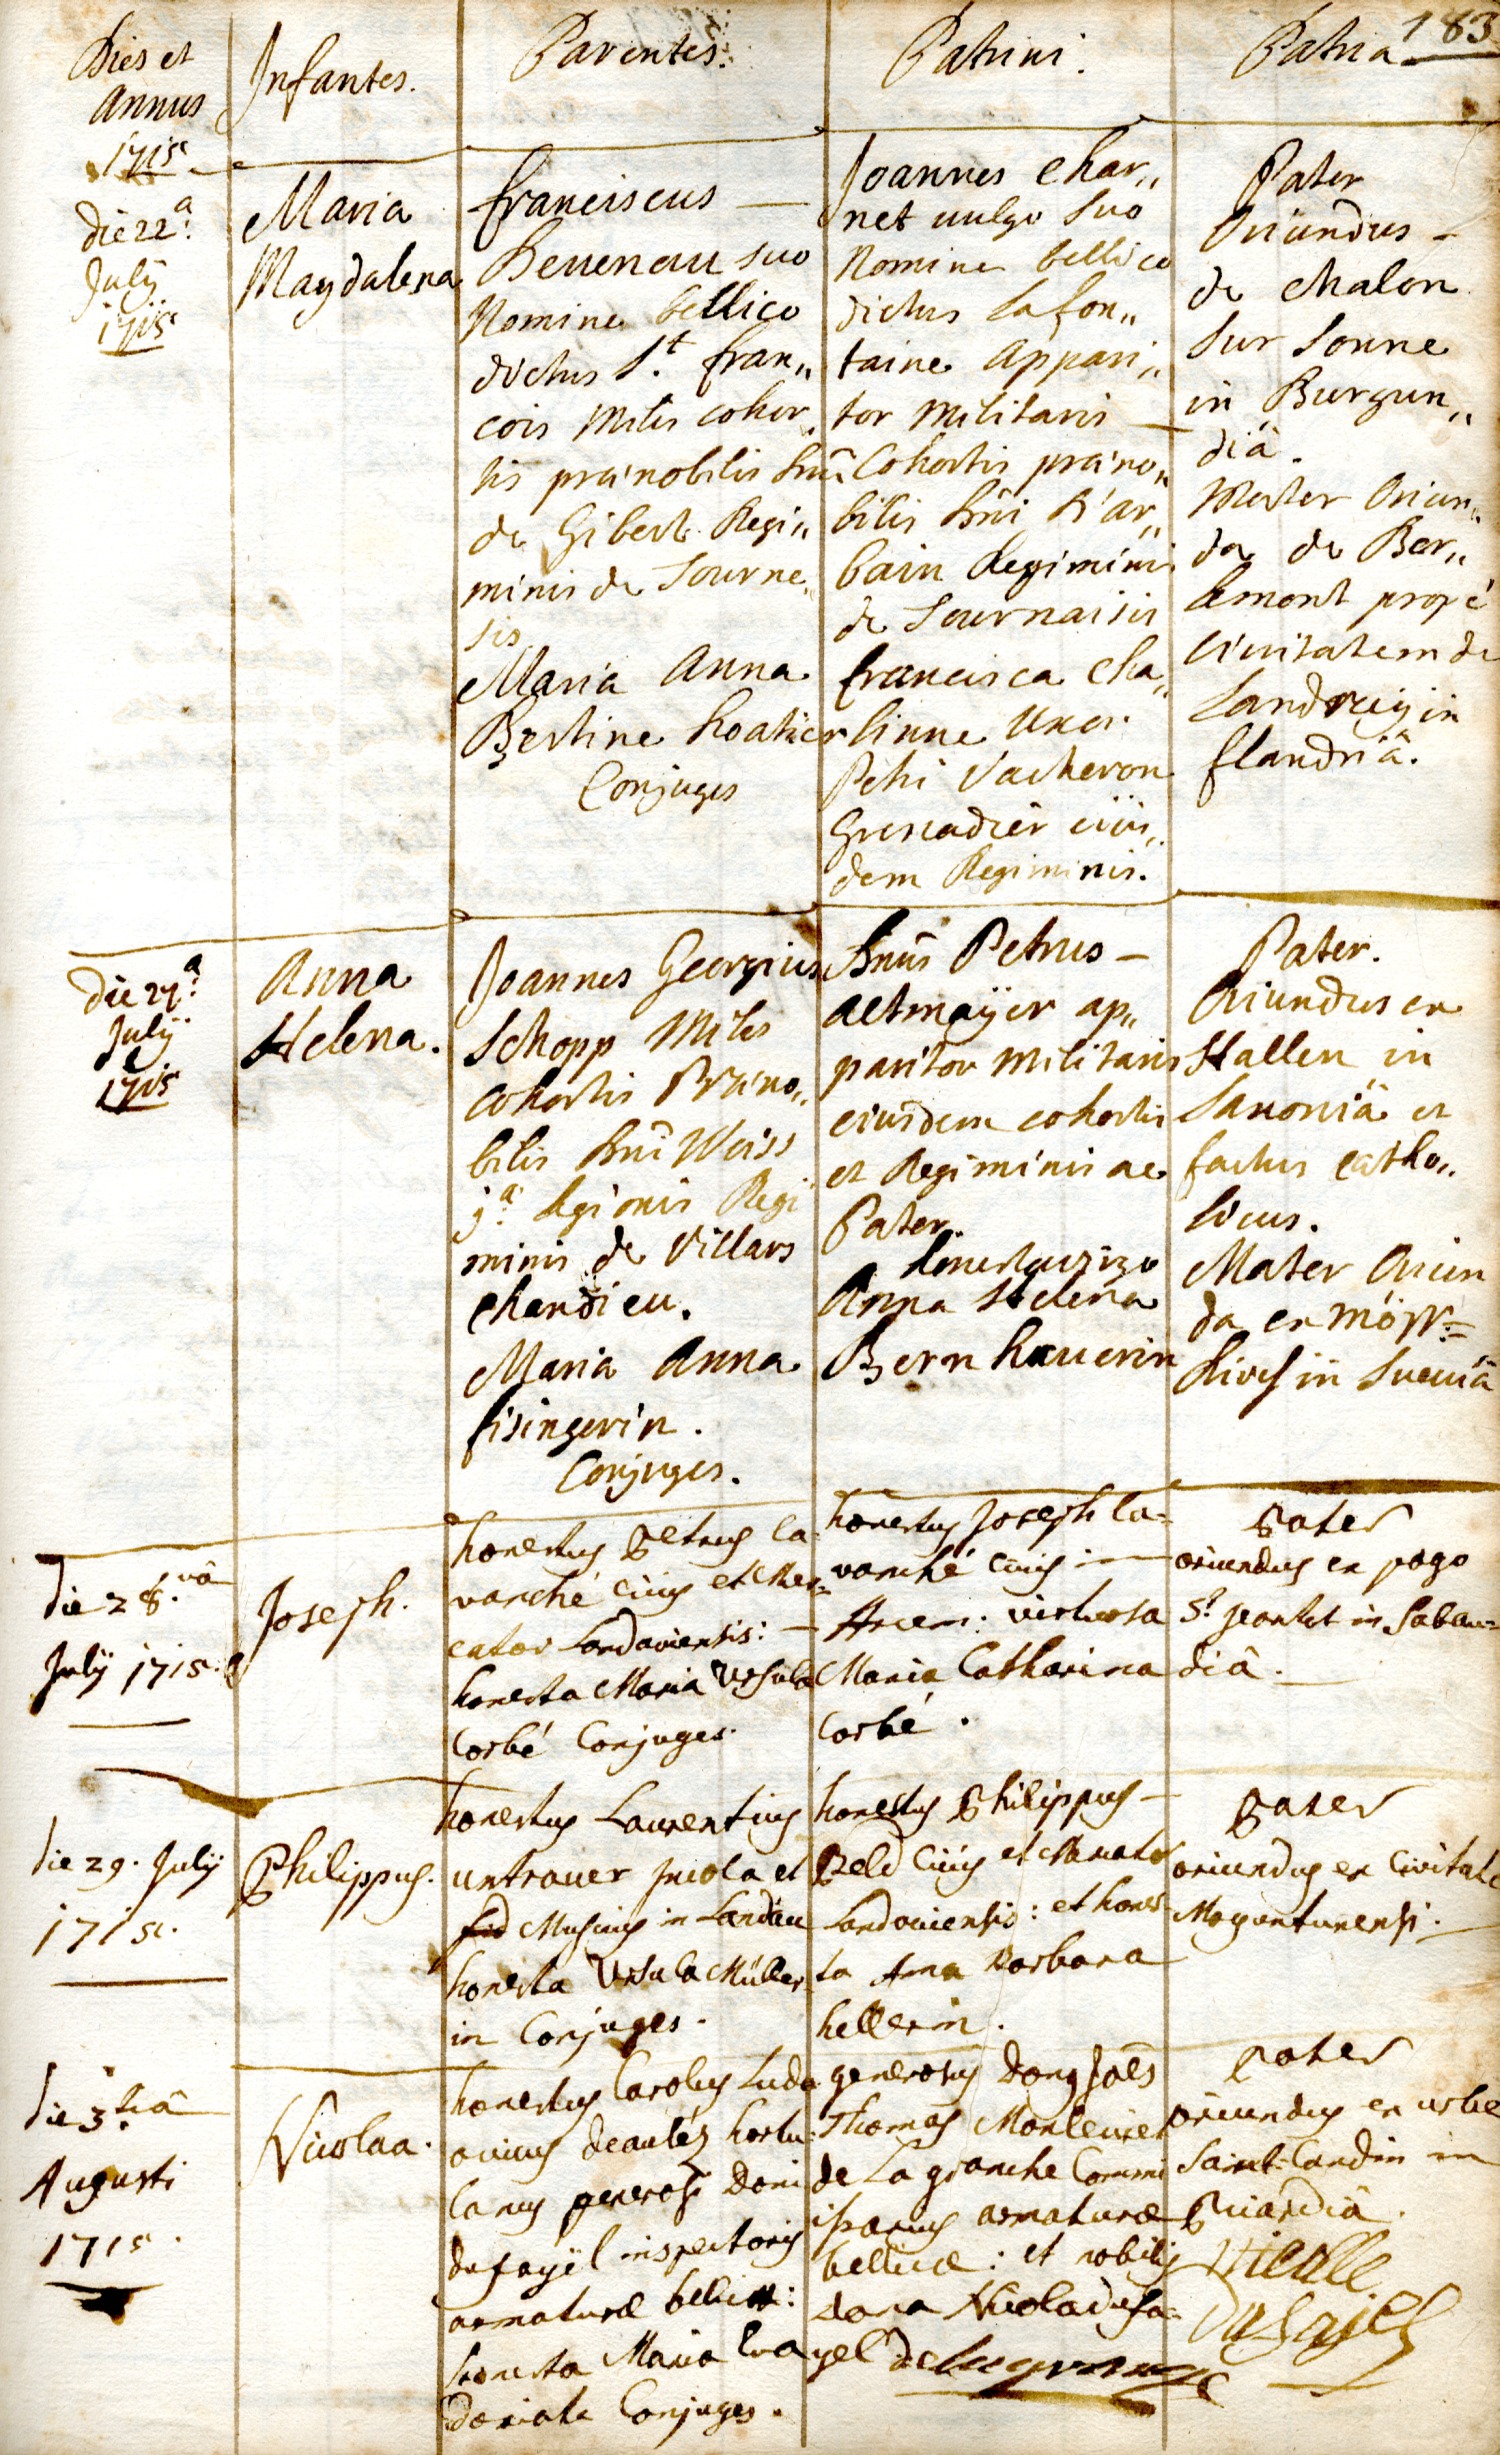 183
Dies et
Annus
1715
Infantes.
Parentes.
Patrini.
Patria
die 22.a
July
1715
Maria
Magdalena
franciscus —
Beuenau suo
Nomine bellico
dictus St. fran„
cois Miles cohor„
tis prænobilis Dnī
de Gibert Regi„
minis de Tourne„
sis
Maria Anna
Bertine hoatier
Conjuges
Joannes Char„
net uulgo Suo
Nomine bellico
dictus Lafon„
taine appari„
tor Militaris —
Cohortis præno„
bilis Dnī D'ar„
bain Regiminis
de Tournaisis
francisca Cha„
linne Uxor
Petri Vacheron
Grenadier eius„
dem Regiminis.
Pater
Oriundus -
de Chalon
Sur Sonne
in Burgun„
diâ.
Mater Oriun„
da de Ber„
lemont propé
Ciuitatem de
Landrecij in
flandriâ.
die 27.a
July
1715
Anna
Helena.
Joannes Georgius
Schopp Miles
Cohortis Præno„
bilis Dnī Weiss
j.a legionis Regi
minis de Villars
Chandieu.
Maria Anna
fisingerin.
Conjuges.
Dnūs Petrus —
Altmaÿer ap„
paritor Militaris
eiusdem cohortis
et Regiminis ac
Pater.
Anna Helena
Bernhauerin
Pater.
Oriundus ex
Hallen in
Saxoniâ et
factus catho„
licus.
Mater Oriun
da ex Mörs=
kirch in Sueuiâ
die 28.vâ
July 1715.
Joseph.
honestus Petrus la=
varché Ciuis et Mer=
cator Landauiensis: —
honesta Maria Ursula
Corbé Conjuges.
honestus Joseph la=
varché Ciuis in
Arcem: virtuosa
Maria Catharina
Corbé.
Pater
oriundus ex pago
St. jeantet in Sabau=
diâ.
die 29. July
1715.
Philippus.
honestus Laurentius
untrauer incola et
Musicus in Landau
honesta Ursula Müller
in Conjuges.
honestus Philippus —
Beld Ciuis et
Landauiensis: et hones=
ta Anna Barbara
hellerin.
Pater
oriundus ex Civitate
Moguntinensi.
die 3.tiâ
Augusti
1715.
Nicolaa.
honestus Carolus Ludo
uicus deautéz hortu=
lanus generosi Doni
dufayël inspectoris
armaturæ bellicæ:
honesta Maria Eva
Doriate Conjuges.
generosus Dons Joēs
Thomas Monteuiel
de La granche Commi
ssarius armaturæ
bellicæ: et nobilis
dona Nicola dufa=
yel delagrange
Pater
oriundus ex urbe
Saint-Landin in
Picardiâ.
Nicolle
Dufajel